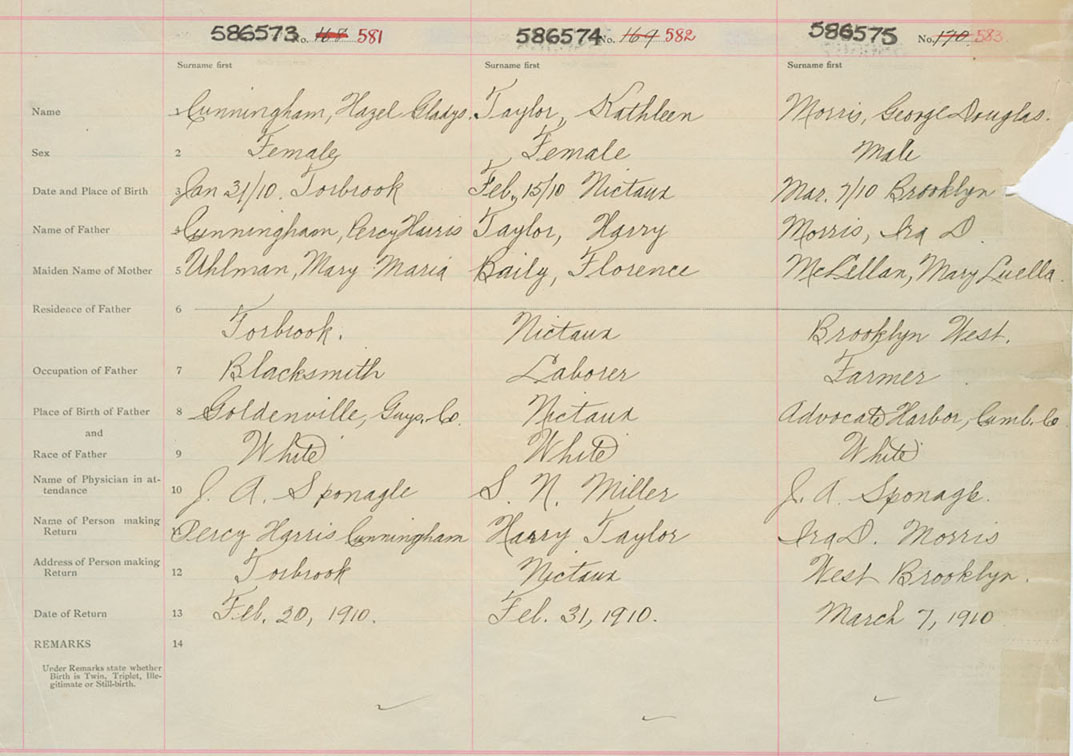 586573 No. 168 581 586574 No. 169 582 586575 No. 170 583
Surname first Surname first Surname first
Name 1 Cunningham, Hazel Gladys. Taylor, Kathleen Morris, George Douglas.
Sex 2 Female Female Male
Date and Place of Birth 3 Jan 31/10. Torbrook Feb, 15/10 Nictaux Mar. 7/10 Brooklyn
Name of Father 4 Cunningham, Percy Harris Taylor, Harry Morris, Ira D.
Maiden Name of Mother 5 Uhlman, Mary Maria Baily, Florence McLellan, Mary Luella.
Residence of Father 6
Torbrook. Nictaux Brooklyn West.
Occupation of Father 7 Blacksmith Laborer Farmer
Place of Birth of Father 8 Goldenville, Guys. Co. Nictaux Advocate Harbor, Cumb. Co
and
Race of Father 9 White White White
Name of Physician in at-
tendance 10 J. A. Sponagle S. N. Miller J. A. Sponagle.
Name of Person making
Return Percy Harris Cunningham Harry Taylor Ira D. Morris
Address of Person making
Return 12 Torbrook Nictaux West Brooklyn.
Date of Return 13 Feb. 20, 1910. Feb. 31, 1910. March 7, 1910
REMARKS 14
Under Remarks state whether
Birth is Twin, Triplet, Ille-
gitimate or Still-birth.